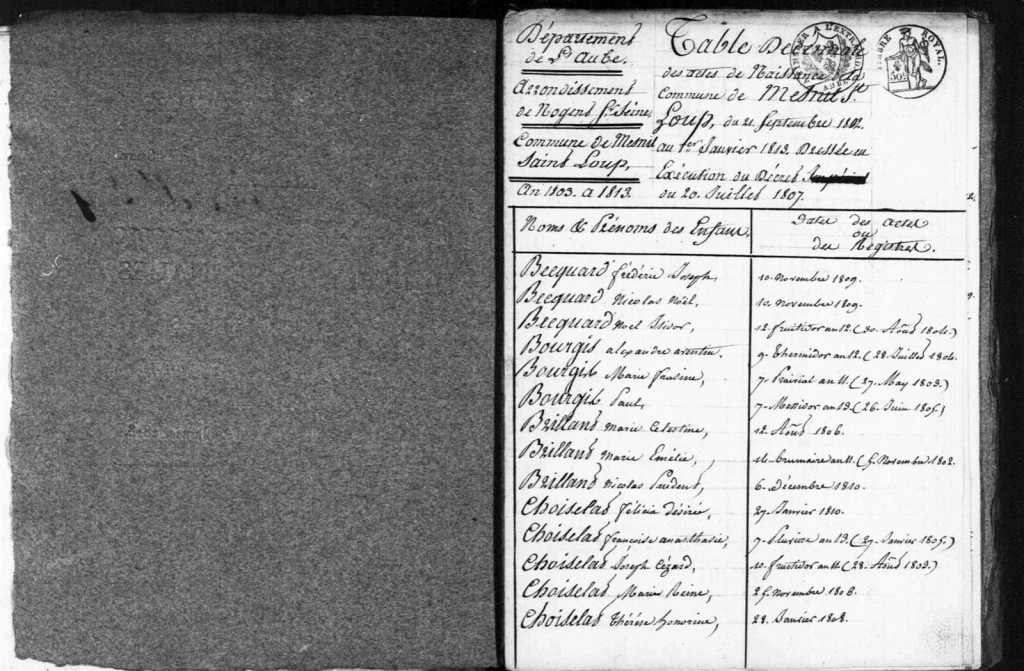 Département
de l'Aube.
Arrondissement
de Nogent S. Seine
Commune de Mesnil
Saint Loup.
An 1803. a 1813.
Table Décennale
des actes de Naissance de la
Commune de Mesnil St.
Loup, du 21. Septembre 1802.
au 1er Janvier 1813. Dressée en
Exécution du Décret Impérial
du 20. Juillet 1807.
TIMBRE ROYAL.
Noms & Prénoms des Enfans.
Dates des actes
ou
des Registres.
Becquard frédéric Joseph, 10. Novembre 1809.
Becquard Nicolas Noël, 10. Novembre 1809.
Becquard Noel Isidor, 12. fructidor an 12. (30. Août 1804.)
Bourgis alexandre aventin. 9. Thermidor an 12. (28. Juillet 1804.
Bourgis Marie Faustine, 7. Prairial an 11. (27. May 1803.)
Bourgis Paul, 7. Messidor an 13. (26. Juin 1805.)
Brilland marie Celestine, 12. Août 1806.
Brilland marie Emélie, 14. brumaire an 11. (5. Novembre 1802.
Brilland Nicolas Prudent, 6. Décembre 1810.
Choiselat félicie désirée, 27. Janvier 1810.
Choiselat françoise anasthasie, 7. Pluviose an 13. (27. Janvier 1805.)
Choiselat Joseph Cézard, 10. fructidor an 11. (28. Août 1803.)
Choiselat Marie Reine, 25. Novembre 1806.
Choiselat Thérèse honorine, 28. Janvier 1808.